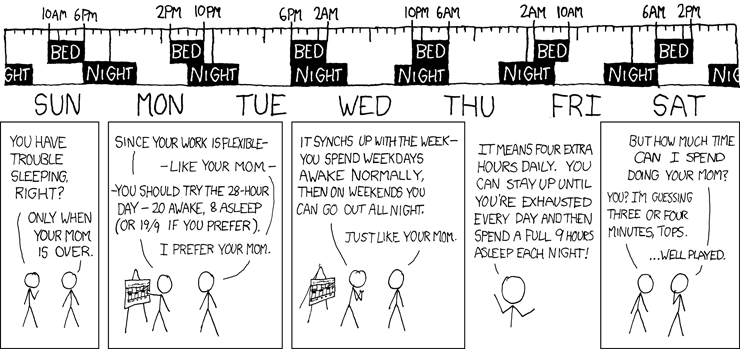 10AM 6PM 2PM 10PM 6PM 2AM 10PM 6AM 2AM 10AM 6AM 2PM
BED BED BED BED BED BED
GHT NIGHT NIGHT NIGHT NIGHT NIGHT NIGHT NI
SUN MON TUE WED THU FRI SAT
YOU HAVE
TROUBLE
SLEEPING,
RIGHT?
ONLY WHEN
YOUR MOM
IS OVER.
SINCE YOUR WORK IS FLEXIBLE—
—LIKE YOUR MOM—
—YOU SHOULD TRY THE 28-HOUR
DAY—20 AWAKE, 8 ASLEEP
(OR 19/9 IF YOU PREFER).
I PREFER YOUR MOM.
IT SYNCHS UP WITH THE WEEK—
YOU SPEND WEEKDAYS
AWAKE NORMALLY,
THEN ON WEEKENDS YOU
CAN GO OUT ALL NIGHT.
JUST LIKE YOUR MOM.
IT MEANS FOUR EXTRA
HOURS DAILY. YOU
CAN STAY UP UNTIL
YOU'RE EXHAUSTED
EVERY DAY AND THEN
SPEND A FULL 9 HOURS
ASLEEP EACH NIGHT!
BUT HOW MUCH TIME
CAN I SPEND
DOING YOUR MOM?
YOU? I'M GUESSING
THREE OR FOUR
MINUTES, TOPS.
...WELL PLAYED.